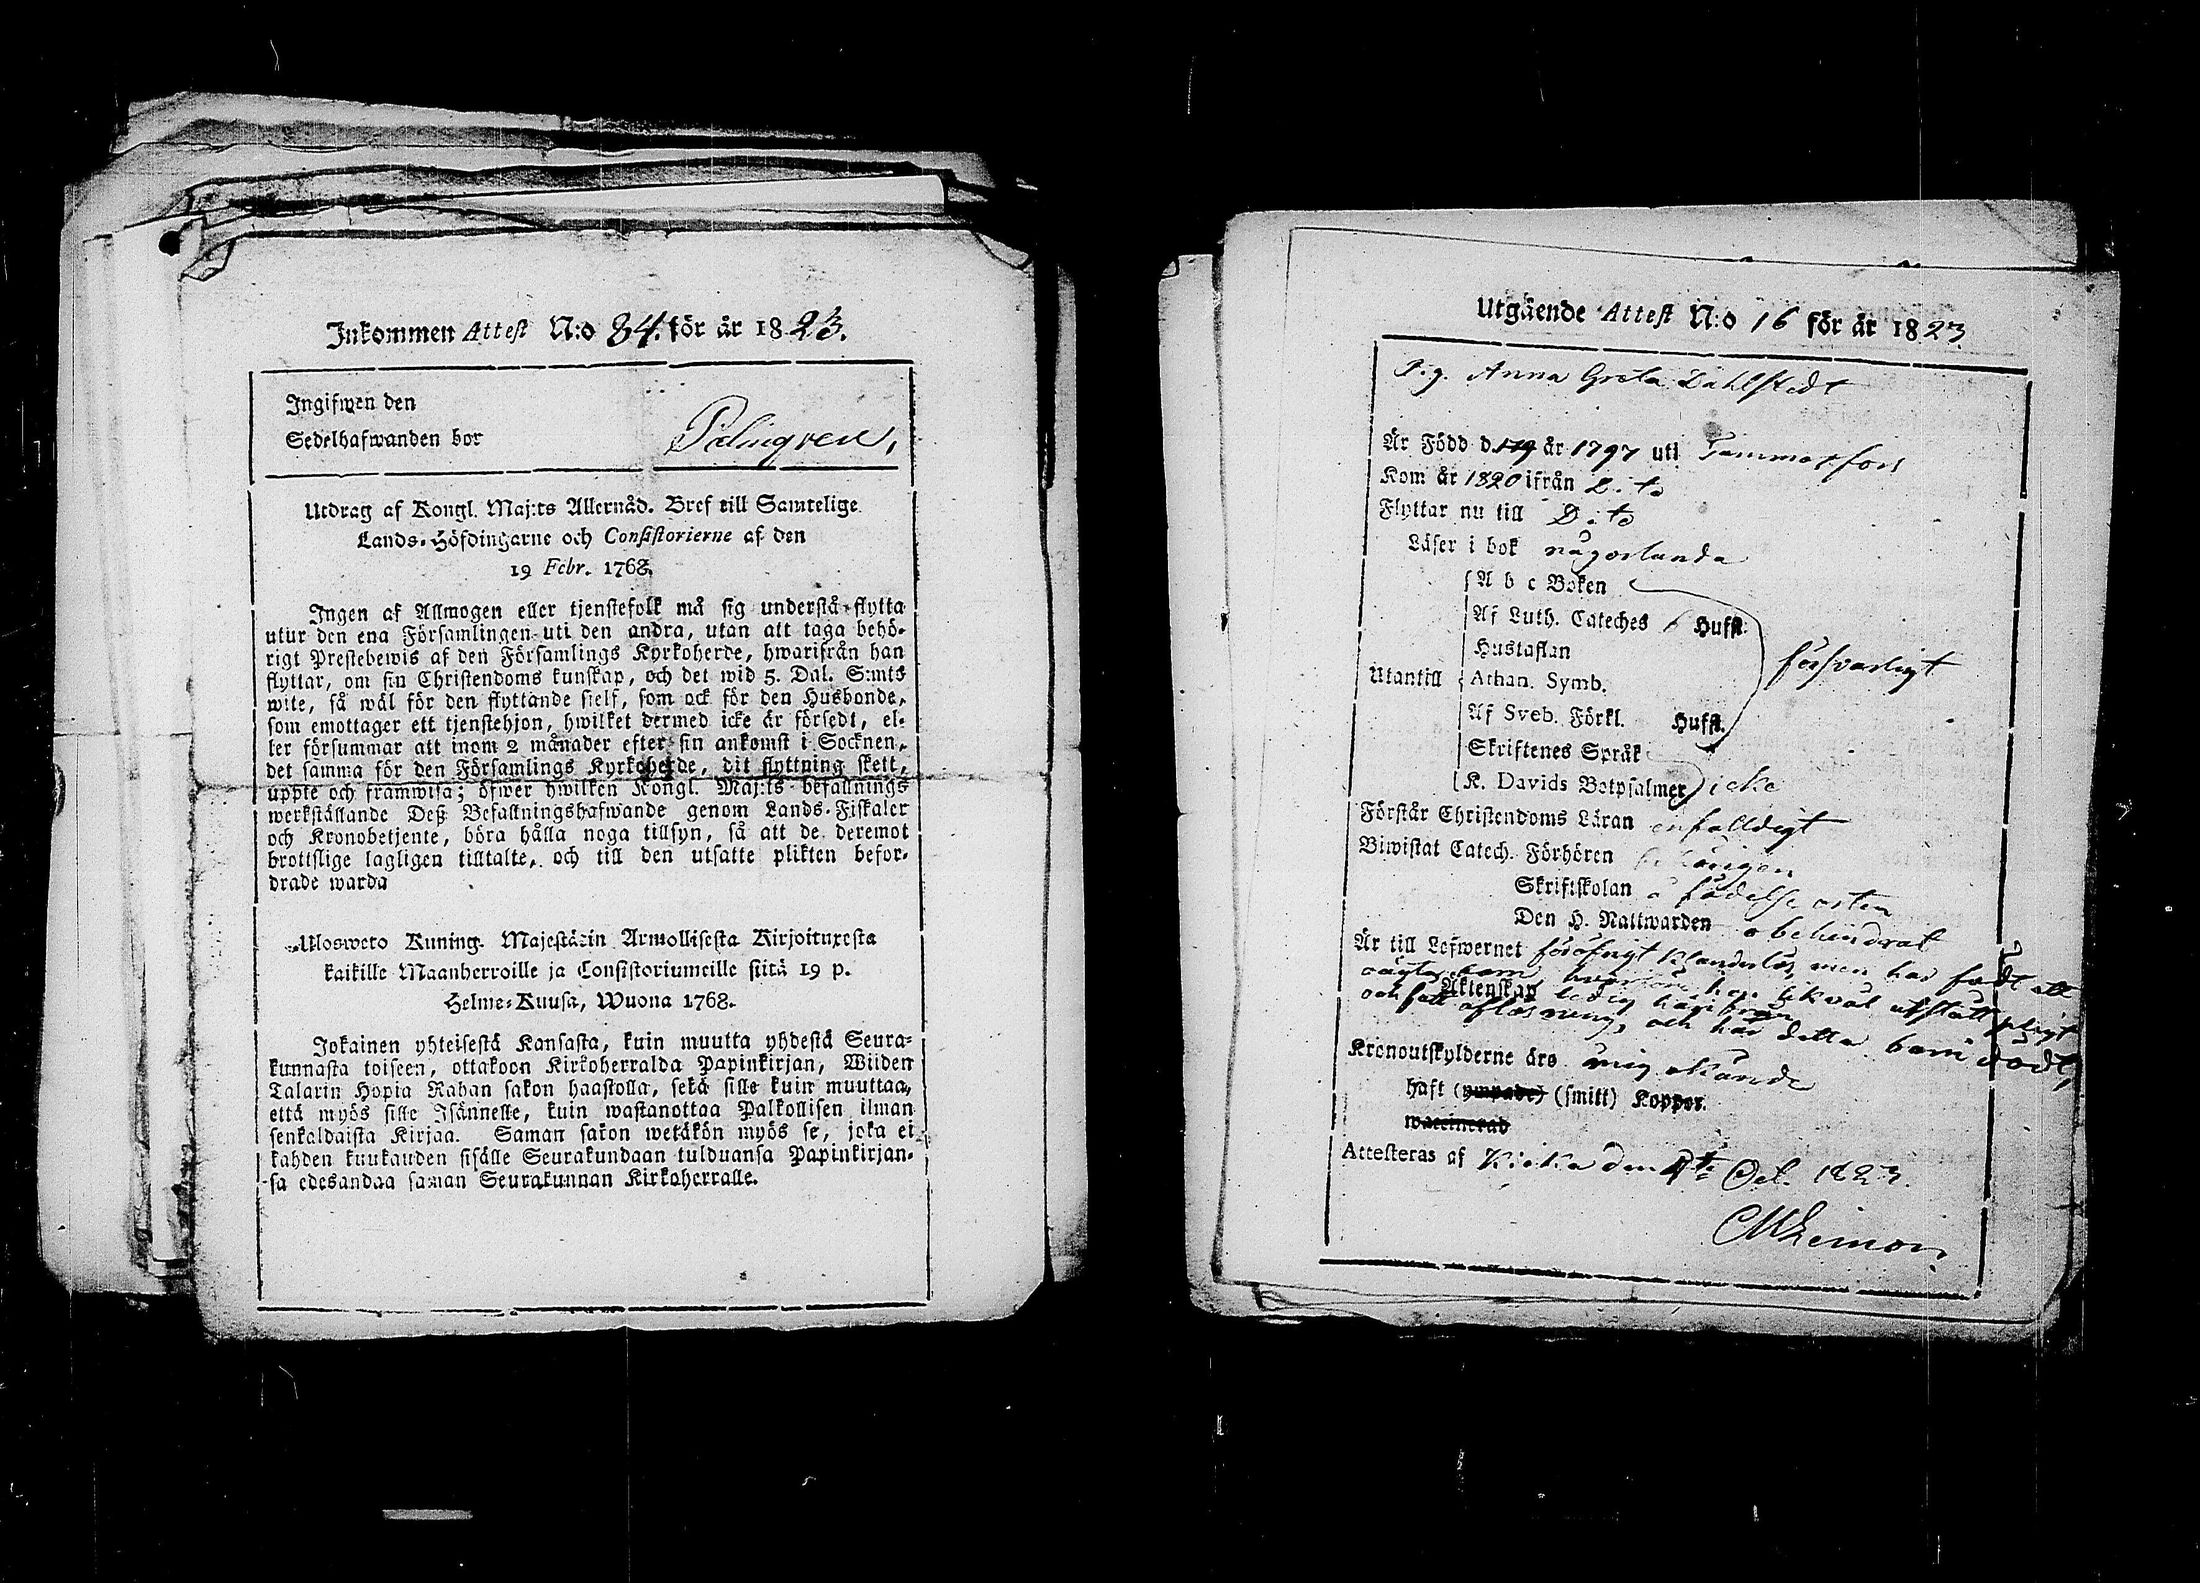 Inkommen Attest N:o 84. för år 1823.
Ingifwen den
Sedelhafwanden bor Palmgren,
Utdrag af Kongl. Maj:ts Allernåd. Bref till Samtelige
Lands-Höfdingarne och Consistorierne af den
19 Febr. 1768.
Ingen af Allmogen eller tjenstefolk må sig understå flytta
utur den ena Församlingen uti den andra, utan att taga behö-
rigt Prestebewis af den Församlings Kyrkoherde, hwarifrån han
flyttar, om sin Christendoms kunskap, och det wid 5. Dal. S:mts
wite, så wäl för den flyttande sielf, som ock för den Husbonde,
som emottager ett tjenstehjon, hwilket dermed icke är försedt, el-
ler försummar att inom 2 månader efter sin ankomst i Socknen,
det samma för den Församlings Kyrkoherde, dit flyttning skett,
uppte och framwisa; öfwer hwilken Kongl. Maj:ts befallnings
werkställande Deß Befallningshafwande genom Lands-Fiskaler
och Kronobetjente, böra hålla noga tillsyn, så att de deremot
brottslige lagligen tilltalte, och till den utsatte plikten befor-
drade warda
Ulosweto Kuning. Majestätin Armollisesta Kirjoituxesta
kaikille Maanherroille ja Consistoriumeille siitä 19 p.
Helme-Kuusa, Wuona 1768.
Jokainen yhteisestä Kansasta, kuin muutta yhdestä Seura-
kunnasta toiseen, ottakoon Kirkoherralda Papinkirjan, Wiiden
Talarin Hopia Rahan sakon haastolla, sekä sille kuin muuttaa,
että myös sille Isännelle, kuin wastanottaa Palkollisen ilman
senkaldaista Kirjaa. Saman sakon wetäkön myös se, joka ei
kahden kuukauden sisälle Seurakundaan tulduansa Papinkirjan-
sa edesandaa saman Seurakunnan Kirkoherralle.
Utgående Attest N:o 16 för år 1823
Pig. Anna Greta Dahlstedt
Är Född d. år 1797 uti Tammerfors
Kom år 1820 ifrån Dito
Flyttar nu till Dito
Läser i bok någorlunda
A b c Boken
Af Luth. Cateches Hufst.
Hustaflan
Utantill Athan. Symb. försvarligt
Af Sveb. Förkl. Hufst.
Skriftenes Språk
K. Davids Botpsalmer icke
Förstår Christendoms Läran enfalldigt
Biwistat Catech. Förhören
Skriftskolan å födelse orten
Den H. Nattwarden obehindrat
Är till Lefwernet föröfrigt klanderlös, men har födt ett
oägta barn likväl utstått pligt
Äktenskap ledig härifrån
och fått aflösning, och har detta barn dödt,
Kronoutskylderne äro mig okände
haft (ympade) (smitt) Koppor.
waccinerad
Attesteras af Kjeka den Oct. 1823.